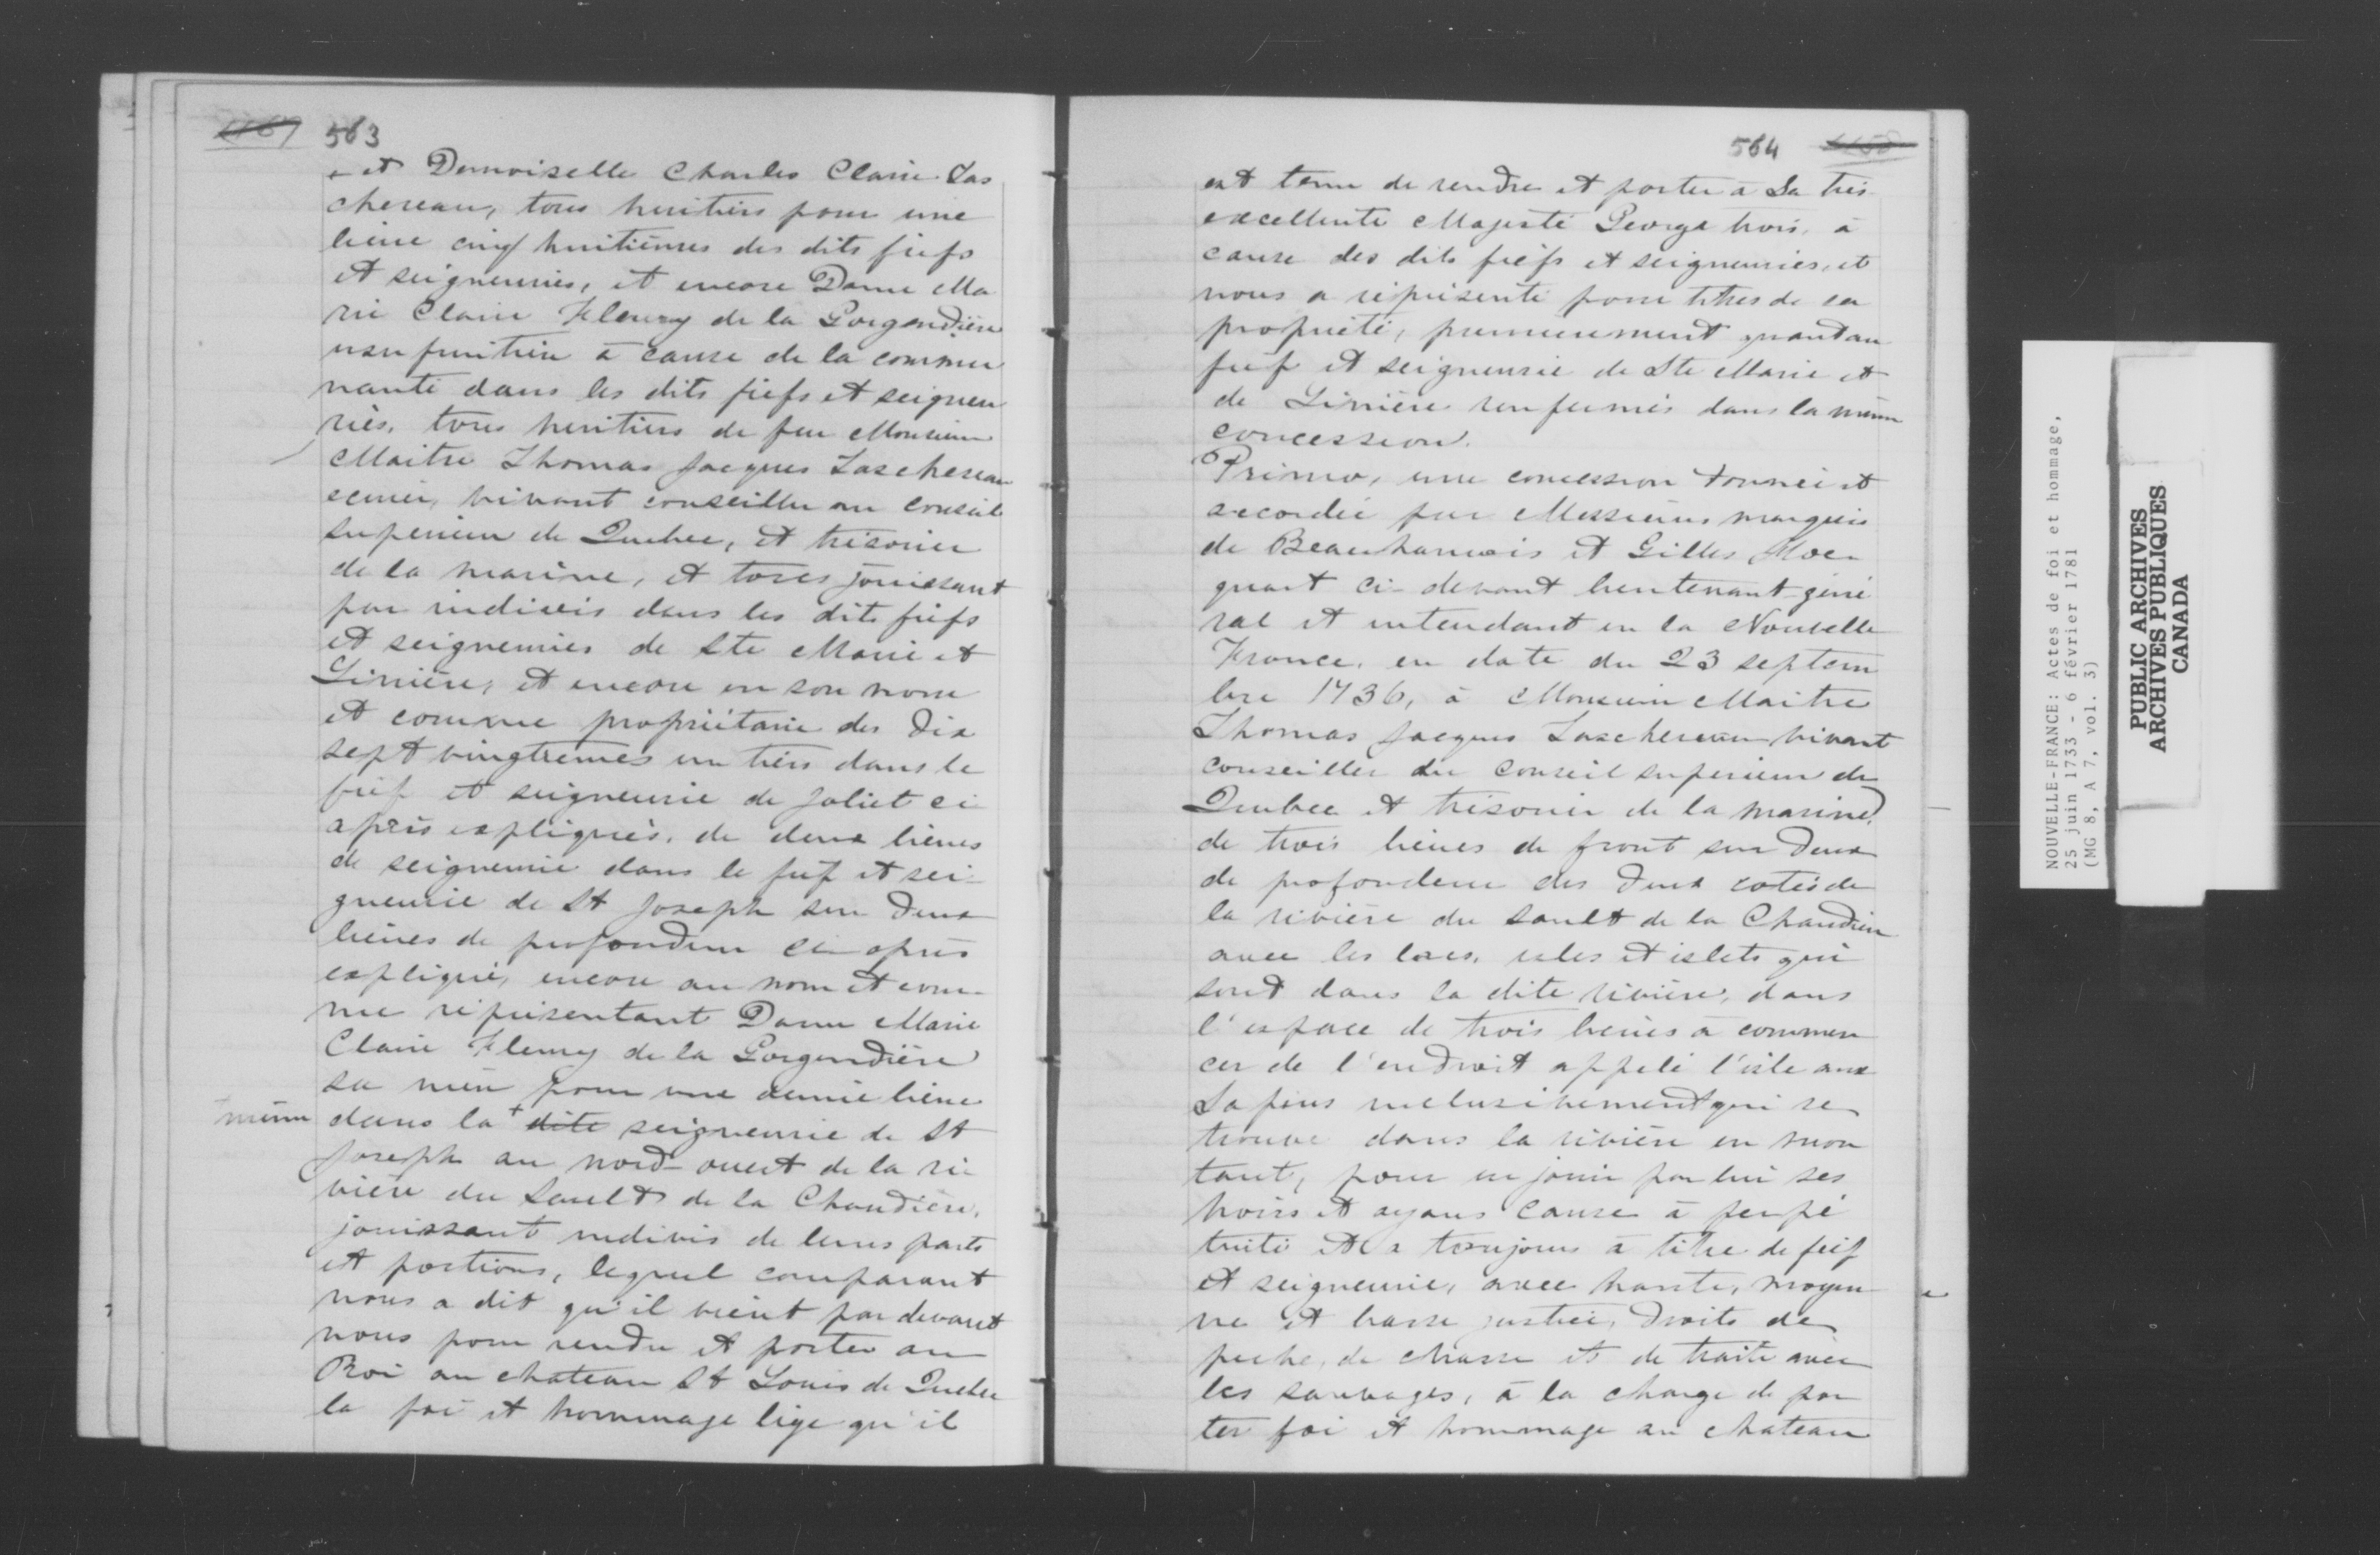 563
et Demoiselle Charles Claire Tas
chereau, tous heritiers pour une
lieue cinq huitièmes des dits fiefs
et seigneuries, et encore Dame Ma
rie Claire Fleury de la Gorgendière
usufruitière à cause de la commu
nauté dans les dits fiefs et seigneu
ries, tous heritiers de feu Monsieur
Maitre Thomas Jacques Taschereau
ecuier, vivant conseiller au Conseil
superieur de Quebec, et trésorier
de la marine, et tous jouissant
par indivis dans les dits fiefs
et seigneuries de Ste Marie et
Linière, et encore en son nom
et comme propriétaire des dix
sept vingtiemes un tiers dans le
fief et seigneurie de Joliet ci
après expliqués, de deux lieues
de seigneurie dans le fief et sei-
gneurie de St Joseph sur deux
lieues de profondeur ci après
expliqué, encore au nom et com-
me réprésentant Dame Marie
Claire Fleury de la Gorgendière
sa mère pour une demie lieue
+ même
dans la + dite seigneurie de St
Joseph au nord-ouest de la ri
vière du Sault de la Chaudière,
jouissant indivis de leurs parts
et portions, lequel comparant
nous a dit qu'il vient par devant
nous pour rendre et porter au
Roi au chateau St Louis de Quebec
la foi et hommage lige qu'il
564
est tenu de rendre et porter à Sa très
excellente Majesté George trois, à
cause des dits fiefs et seigneuries, et
nous a réprésenté pour titres de sa
propriété, premierement quant au
fief et seigneurie de Ste Marie et
de Linière renfermés dans la même
concession.
Primo, une concession donnée et
accordée par Messieurs marquis
de Beauharnois et Gilles Hoc-
quart ci-devant lieutenant géné
ral et intendant en la Nouvelle
France, en date du 23 septem
bre 1736, à Monsieur Maitre
Thomas Jacques Taschereau vivant
conseiller du Conseil superieur de
Quebec et trésorier de la marine,
de trois lieues de front sur deux
de profondeur des deux cotés de
la rivière du Sault de la Chaudière
avec les lacs, isles et islets qui
sont dans la dite rivière, dans
l'espace de trois lieues à commen
cer de l'endroit appelé l'isle aux
Sapins inclusivement qui se
trouve dans la rivière en mon
tant, pour en jouir par lui ses
hoirs et ayans cause à perpé
tuité et à toujours à titre de fief
et seigneurie, avec haute, moyen
ne et basse justice, droits de
peche, de chasse et de traite avec
les sauvages, à la charge de por
ter foi et hommage au chateau
NOUVELLE-FRANCE: Actes de foi et hommage,
25 juin 1733 - 6 février 1781
(MG 8, A 7, vol. 3)
PUBLIC ARCHIVES
ARCHIVES PUBLIQUES
CANADA